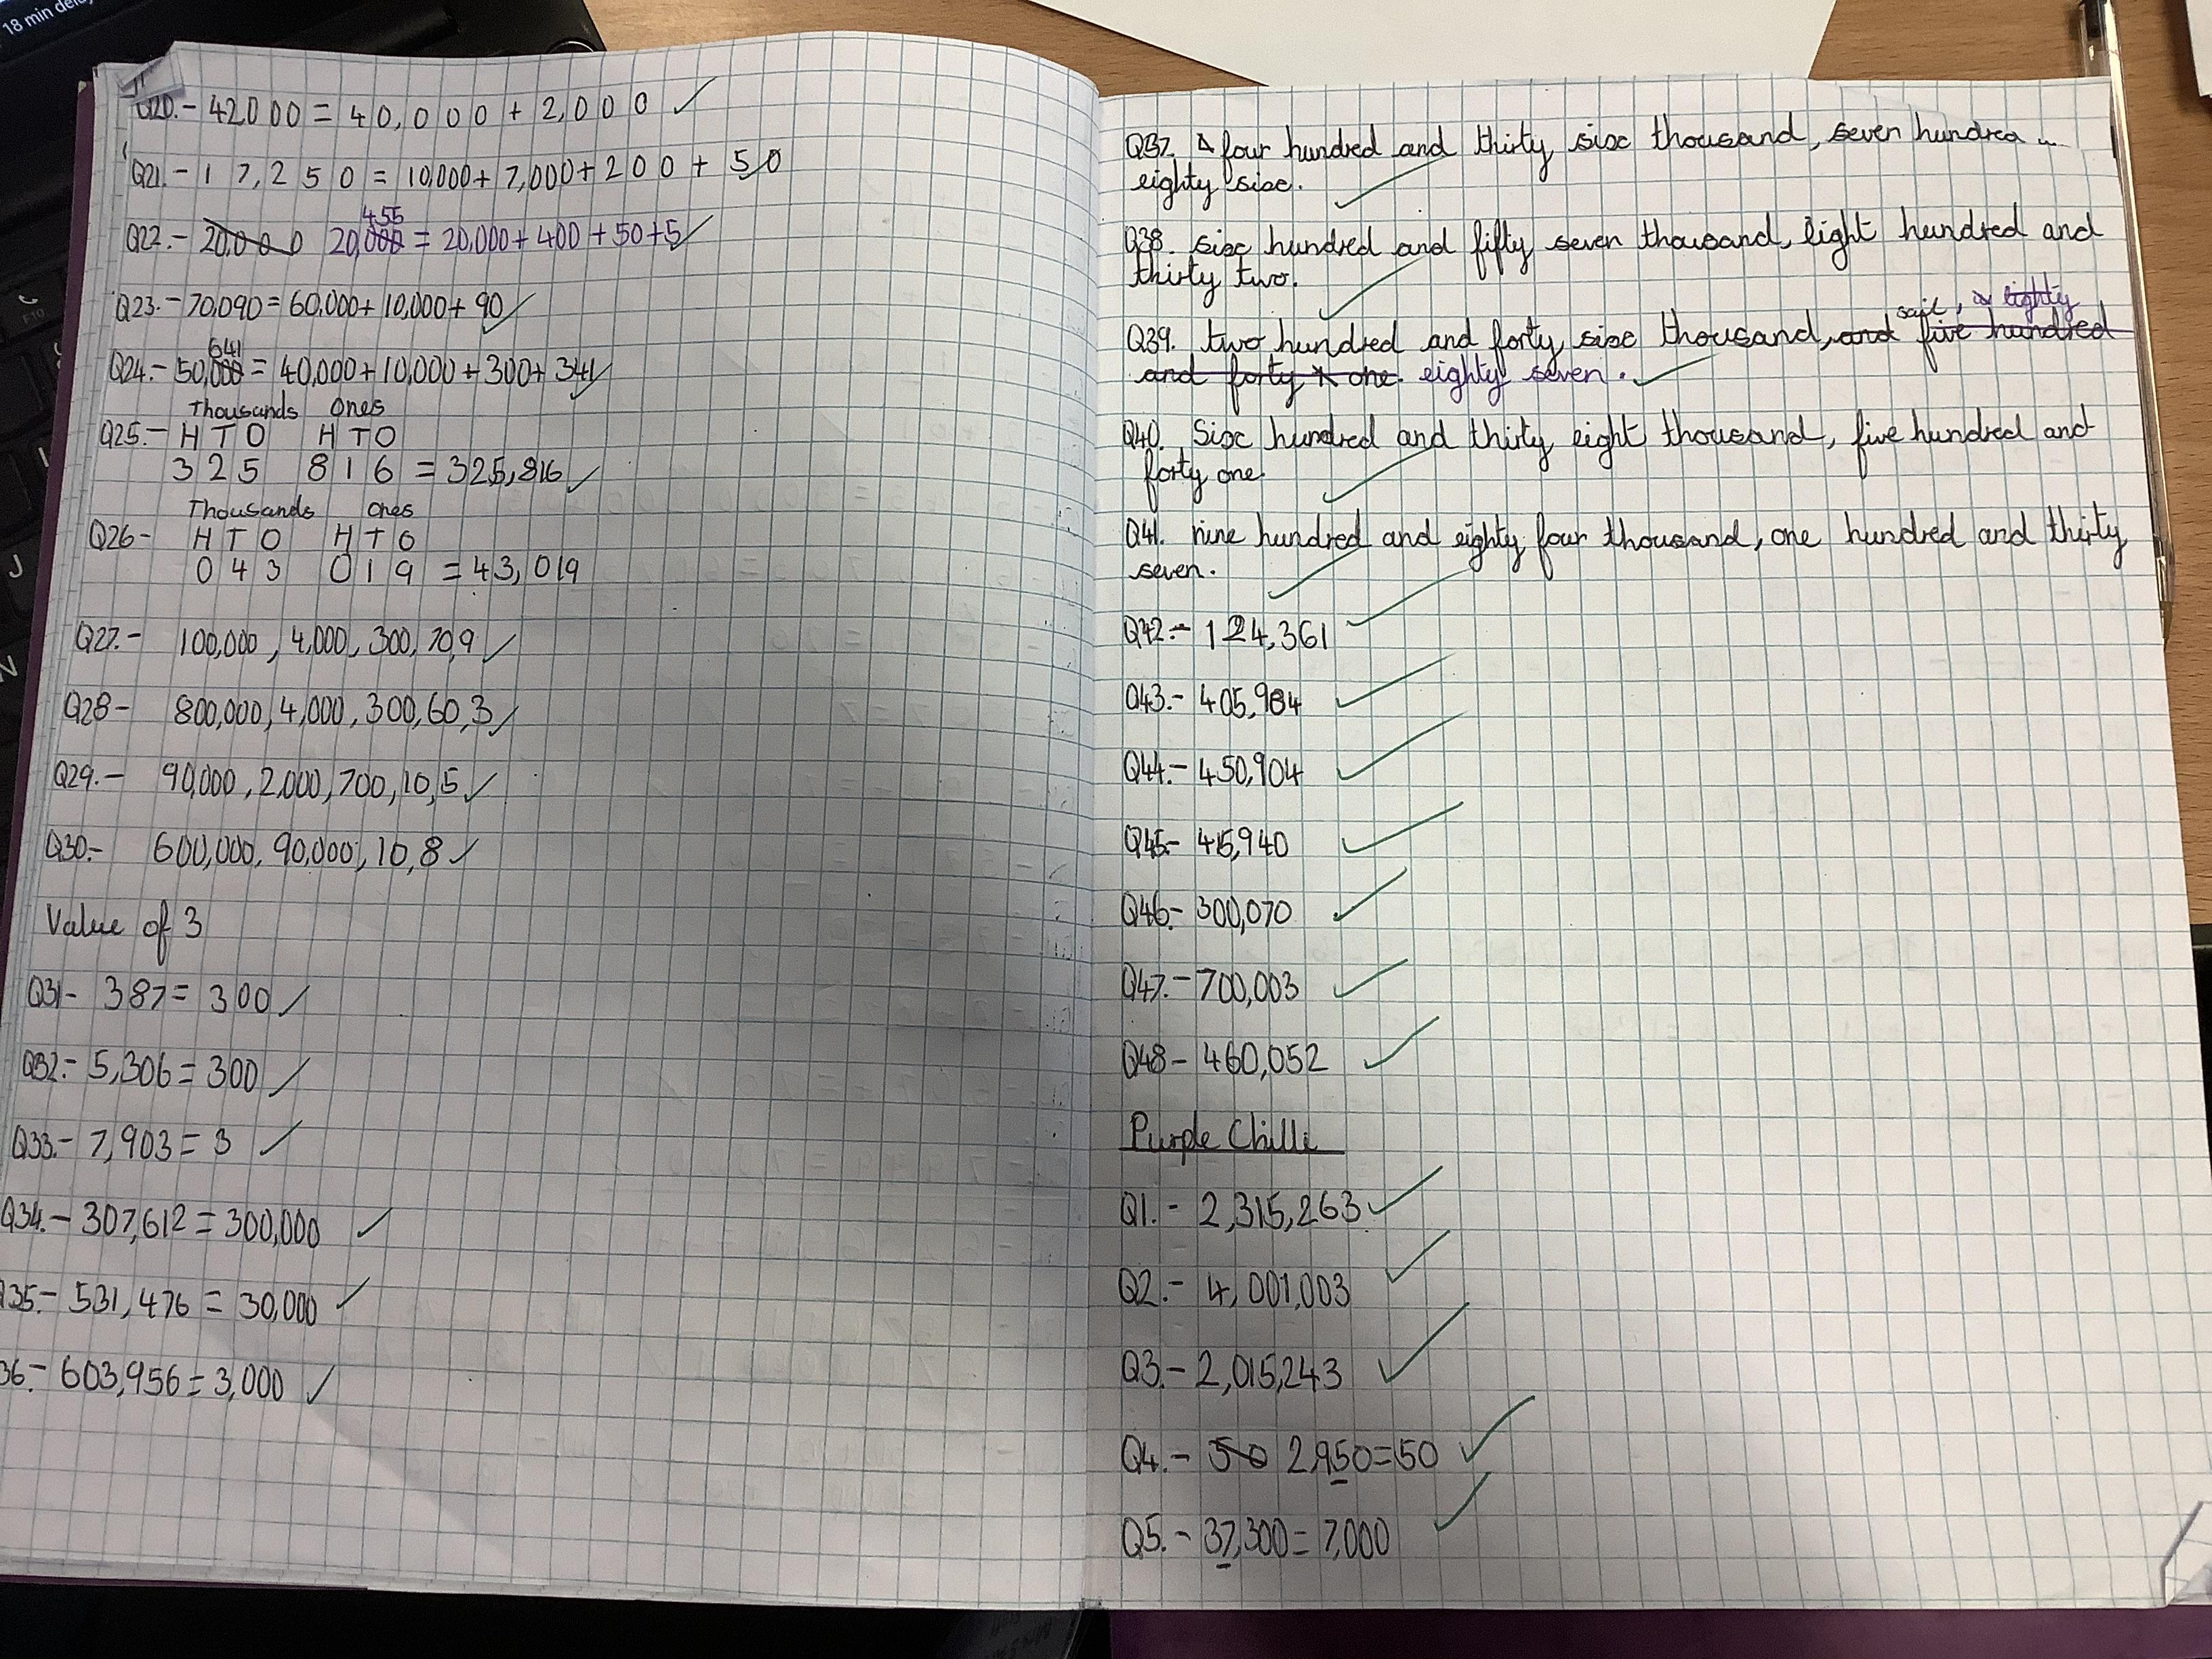 18 min
Q20.- 42000 = 40,000 + 2,000
Q21.- 17,250 = 10,000 + 7,000 + 200 + 50
455
Q22.- 20,000 20,000 = 20,000 + 400 + 50 + 5
Q23.- 70,090 = 60,000 + 10,000 + 90
641
Q24.- 50,000 = 40,000 + 10,000 + 300 + 341
Thousands Ones
Q25.- H T O H T O
3 2 5 8 1 6 = 325,816
Thousands Ones
Q26- H T O H T O
0 4 3 0 1 9 = 43,019
Q27.- 100,000, 4,000, 300, 70, 9
Q28- 800,000, 4,000, 300, 60, 3
Q29.- 90,000, 2,000, 700, 10, 5
Q30.- 600,000, 90,000, 10, 8
Value of 3
Q31- 387 = 300
Q32.- 5,306 = 300
Q33.- 7,903 = 3
Q34.- 307,612 = 300,000
Q35.- 531,476 = 30,000
36.- 603,956 = 3,000
Q37. four hundred and thirty six thousand, seven hundred
eighty six.
Q38. six hundred and fifty seven thousand, eight hundred and
thirty two.
eighty
Q39. two hundred and forty six thousand, and five hundred
and forty one. eighty seven.
Q40. Six hundred and thirty eight thousand, five hundred and
forty one.
Q41. nine hundred and eighty four thousand, one hundred and thirty
seven.
Q42.- 124,361
Q43.- 405,984
Q44.- 450,904
Q45.- 415,940
Q46.- 300,070
Q47.- 700,003
Q48- 460,052
Purple Chilli
Q1.- 2,315,263
Q2.- 4,001,003
Q3.- 2,015,243
Q4.- 50 2,950 = 50
Q5.- 37,300 = 7,000